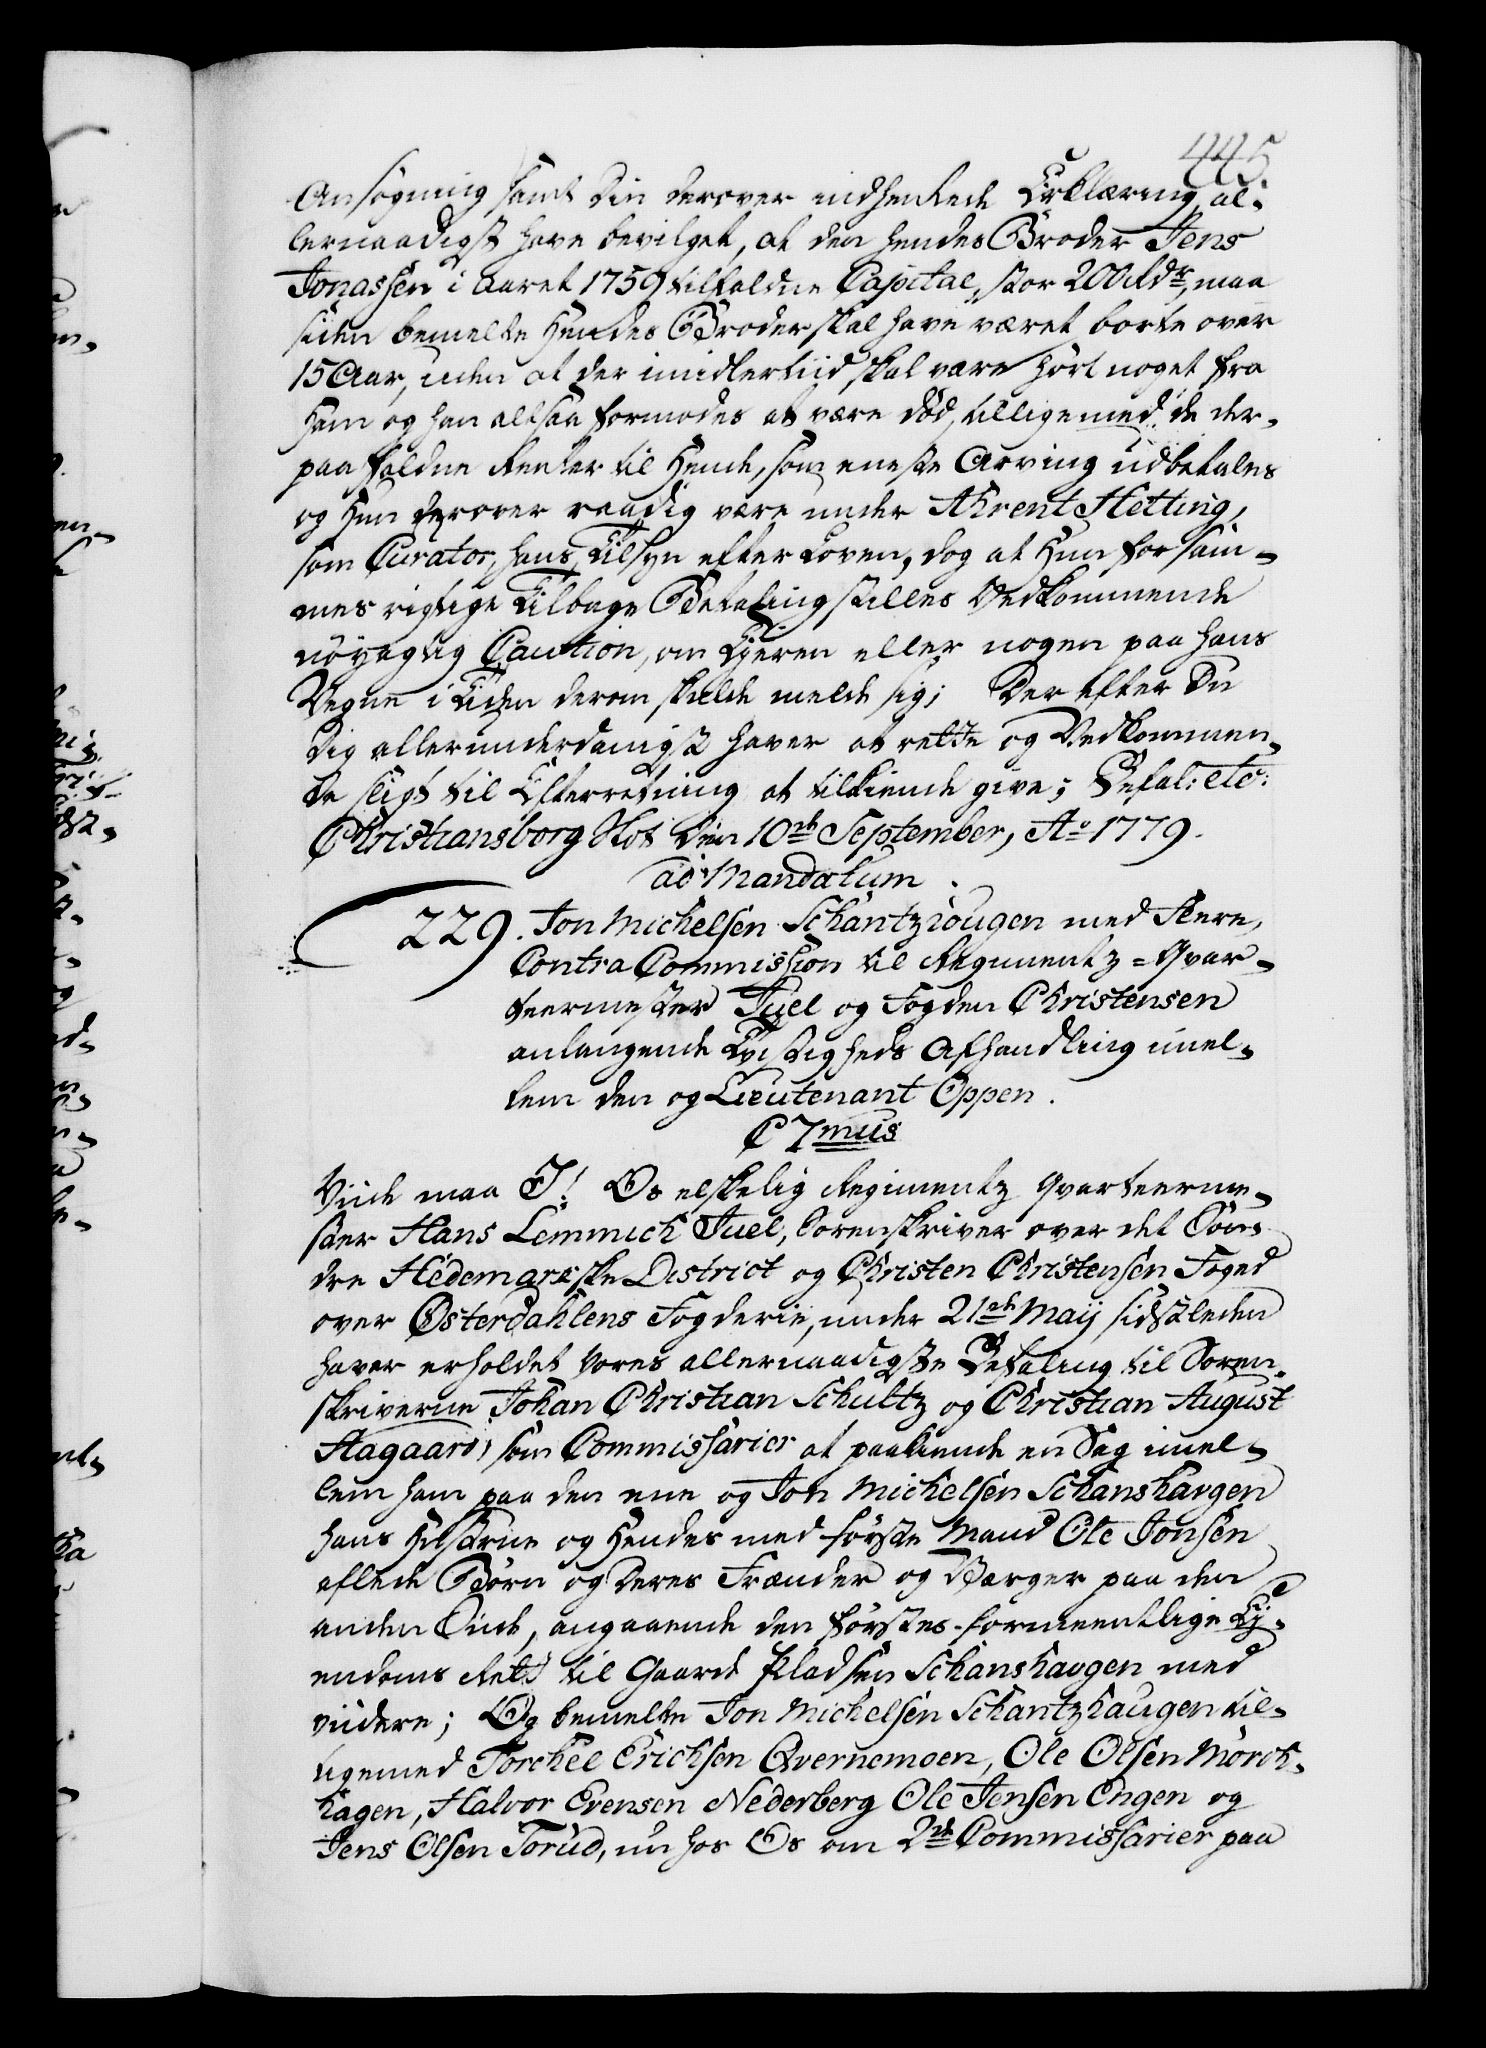 445
Ansögning samt din derover indhentede Erklæring, al-
lernaadigst have bevilget, at den hendes Broder Jens
Jonassen i Aaret 1759 tilfaldne Capital, stor 200 rdr, maa
siden bemelte Hendes Broder skal have været borte over
15 Aar, uden at der imidlertiid skal være hört noget fra
ham og han altsaa formodes at være död, tilligemed de der-
paa faldne Renter til Hende, som eneste Arving udbetales
og Hun derover raadig være under Ahrent Hetting,
som Curator, hans Tilsyn efter Loven, dog at Hun for sam-
mes rigtige Tilbage Betaling stilles Vedkommende
nöyagtig Caution, om Ejeren eller nogen paa hans
Vegne i Tiden derom skulde melde sig; Der efter Du
dig allerunderdanigst haver at rette og Vedkommen-
de sligt til Efterretning at tilkiende give; Befal: etc:
Christiansborg Slot den 10de September, Ao 1779.
ad Mandatum.
229. Jon Michelsen Schantzhougen med Flere,
Contra Commission til Regimentz-Qvar-
teermester Juel og Fogden Christensen
anlangende Tvistigheds Afhandling imel-
lem dem og Lieutenant Oppen.
C 7mus
Viide maa I! Os elskelig Regimentz Qvarteerme-
ster Hans Lemmich Juel, Sorenskriver over det Sön-
dre Hedemarkske District og Christen Christensen Foged
over Østerdahlens Fogderie, under 21de Maij sidstleden
haver erholdet Vores allernaadigste Befaling til Soren-
skriverne Johan Christian Schultz og Christian August
Aagaard, som Commissarier at paakiende en Sag imel-
lem ham paa den ene og Jon Michelsen Schanshavgen
hans Hustrue og Hendes med förste Mand Ole Jonsen
aflede Börn og deres Frænder og Værger paa den
anden Siide, angaaende den förstes formeentlige Ej-
endoms Rett til Gaarde Pladsen Schanshavgen med
viidere; Og bemelte Jon Michelsen Schantzhaugen til-
ligemed Torchel Erichsen Qvernemoen, Ole Olsen Mörck-
hagen, Halvor Evensen Nederberg Ole Jensen Engen og
Jens Olsen Torud, nu hos Os om 2de Commissarier paa